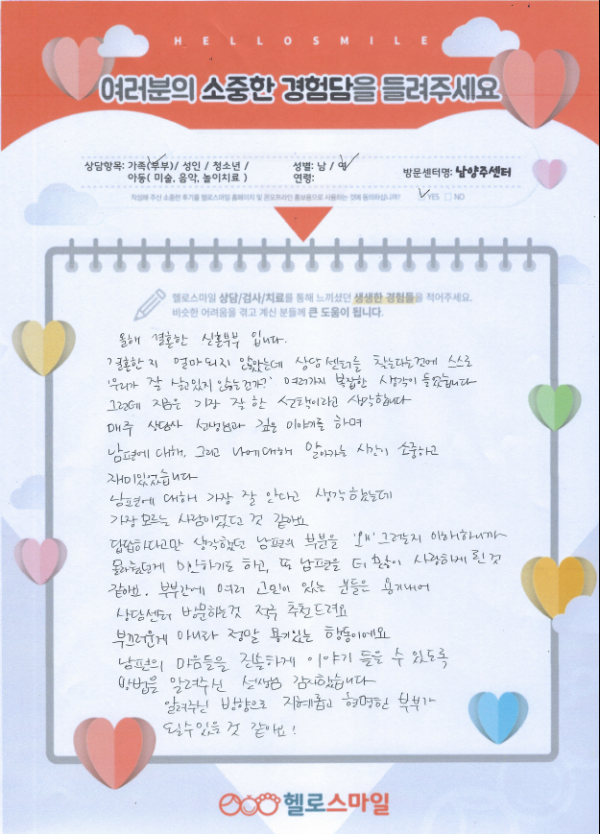 HELLOSMILE
여러분의 소중한 경험담을 들려주세요
상담항목: 가족(부부)/ 성인 / 청소년 /
아동( 미술, 음악, 놀이치료 )
성별: 남 / 여
연령:
방문센터명: 남양주센터
작성해 주신 소중한 후기를 헬로스마일 홈페이지 및 온오프라인 홍보용으로 사용하는 것에 동의하십니까?
YES NO
헬로스마일 상담/검사/치료를 통해 느끼셨던 생생한 경험들을 적어주세요.
비슷한 어려움을 겪고 계신 분들께 큰 도움이 됩니다.
올해 결혼한 신혼부부 입니다.
결혼한지 얼마되지 않았는데 상담센터를 찾는다는것에 스스로
'우리가 잘 살고있지 않는건가?' 여러가지 복잡한 생각이 들었습니다
그런데 지금은 가장 잘 한 선택이라고 생각합니다
매주 상담사 선생님과 깊은 이야기를 하며
남편에 대해, 그리고 나에대해 알아가는 시간이 소중하고
재미있었습니다
남편에 대해 가장 잘 안다고 생각했는데
가장모르는 사람이었던 것 같아요
답답하다고만 생각했던 남편의 부분을 '왜' 그러는지 이해하니까
몰라줬던게 미안하기도 하고, 또 남편을 더 많이 사랑하게 된것
같아요. 부부간에 여러 고민이 있는 분들은 용기내어
상담센터 방문하는것 적극 추천드려요
부끄러운게 아니라 정말 용기있는 행동이에요
남편의 마음들을 진솔하게 이야기 들을 수 있도록
방법을 알려주신 선생님 감사했습니다
알려주신 방향으로 지혜롭고 현명한 부부가
될수있을 것 같아요!
헬로스마일